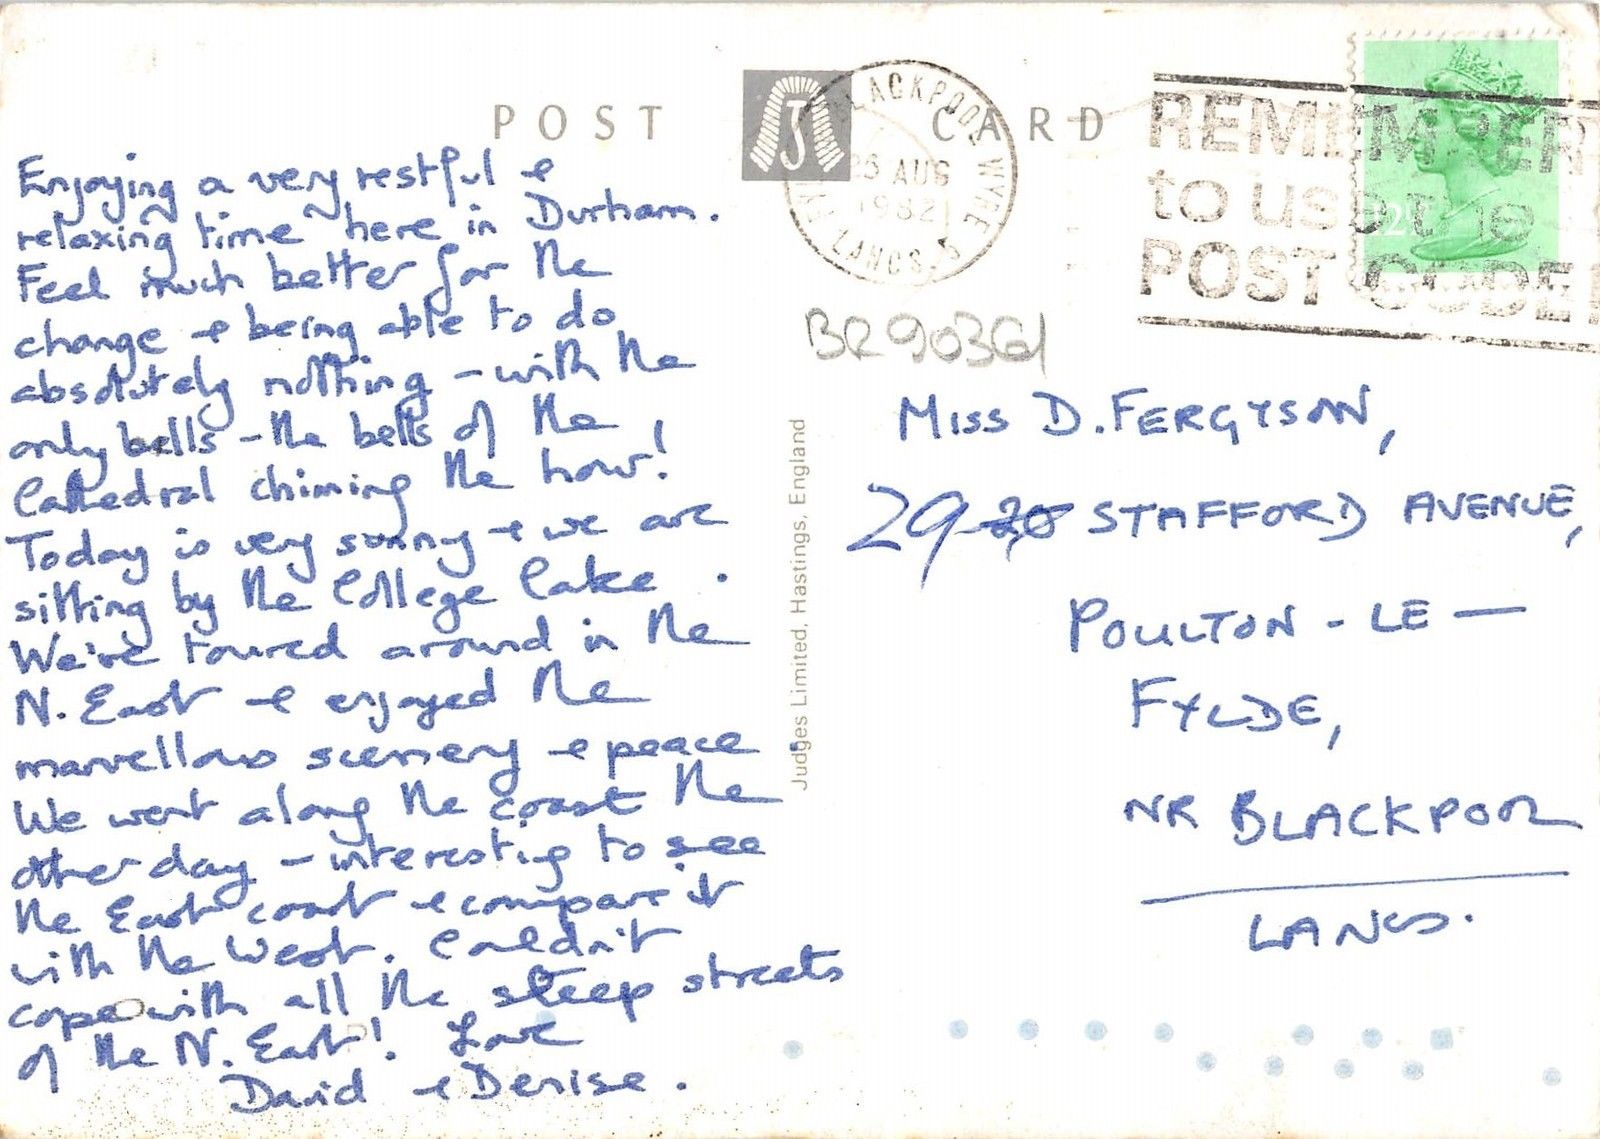 POST CARD
BLACKPOOL WYRE
25 AUG
1982
LANCS.
REMEMBER
to use the
POST CODE
12½P
BR90361
Enjoying a very restful &
relaxing time here in Durham.
Feel much better for the
change & being able to do
absolutely nothing - with the
only bells - the bells of the
Cathedral chiming the hour!
Today is very sunny & we are
sitting by the College Lake.
We've toured around in the
N. East & enjoyed the
marvellous scenery & peace.
We went along the coast the
other day - interesting to see
the East coast & compare it
with the West. Couldn't
cope with all the steep streets
of the N. East! Love
David & Denise.
Judges Limited, Hastings, England
MISS D. FERGYSON,
29 STAFFORD AVENUE,
POULTON - LE -
FYLDE,
NR BLACKPOOL
LANCS.